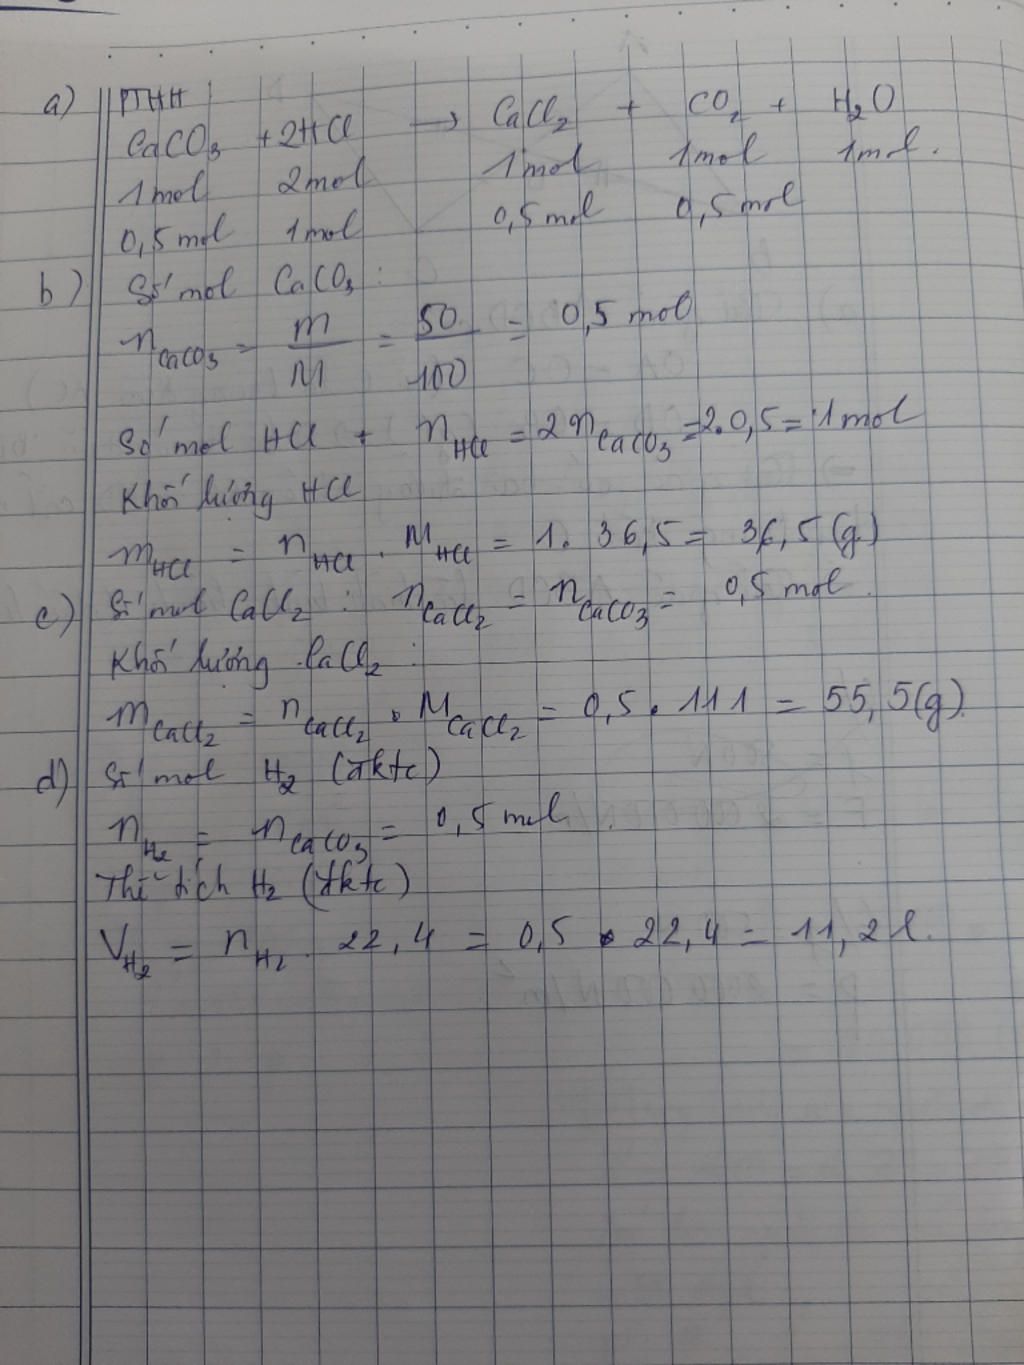 a) PTHH
CaCO₃ + 2HCl → CaCl₂ + CO₂ + H₂O
1mol 2mol 1mol 1mol 1mol.
0,5mol 1mol 0,5mol 0,5mol
b) Số mol CaCO₃ :
n CaCO₃ = m/M = 50/100 = 0,5 mol
Số mol HCl + n HCl = 2 n CaCO₃ = 2.0,5 = 1mol
Khối lượng HCl
m HCl = n HCl . M HCl = 1. 36,5 = 36,5 (g)
c) Số mol CaCl₂ : n CaCl₂ = n CaCO₃ = 0,5 mol.
Khối lượng CaCl₂ :
m CaCl₂ = n CaCl₂ . M CaCl₂ = 0,5 . 111 = 55,5(g).
d) Số mol H₂ (đktc)
n H₂ = n CaCO₃ = 0,5 mol.
Thể tích H₂ (đktc)
V H₂ = n H₂ . 22,4 = 0,5 . 22,4 = 11,2 l.